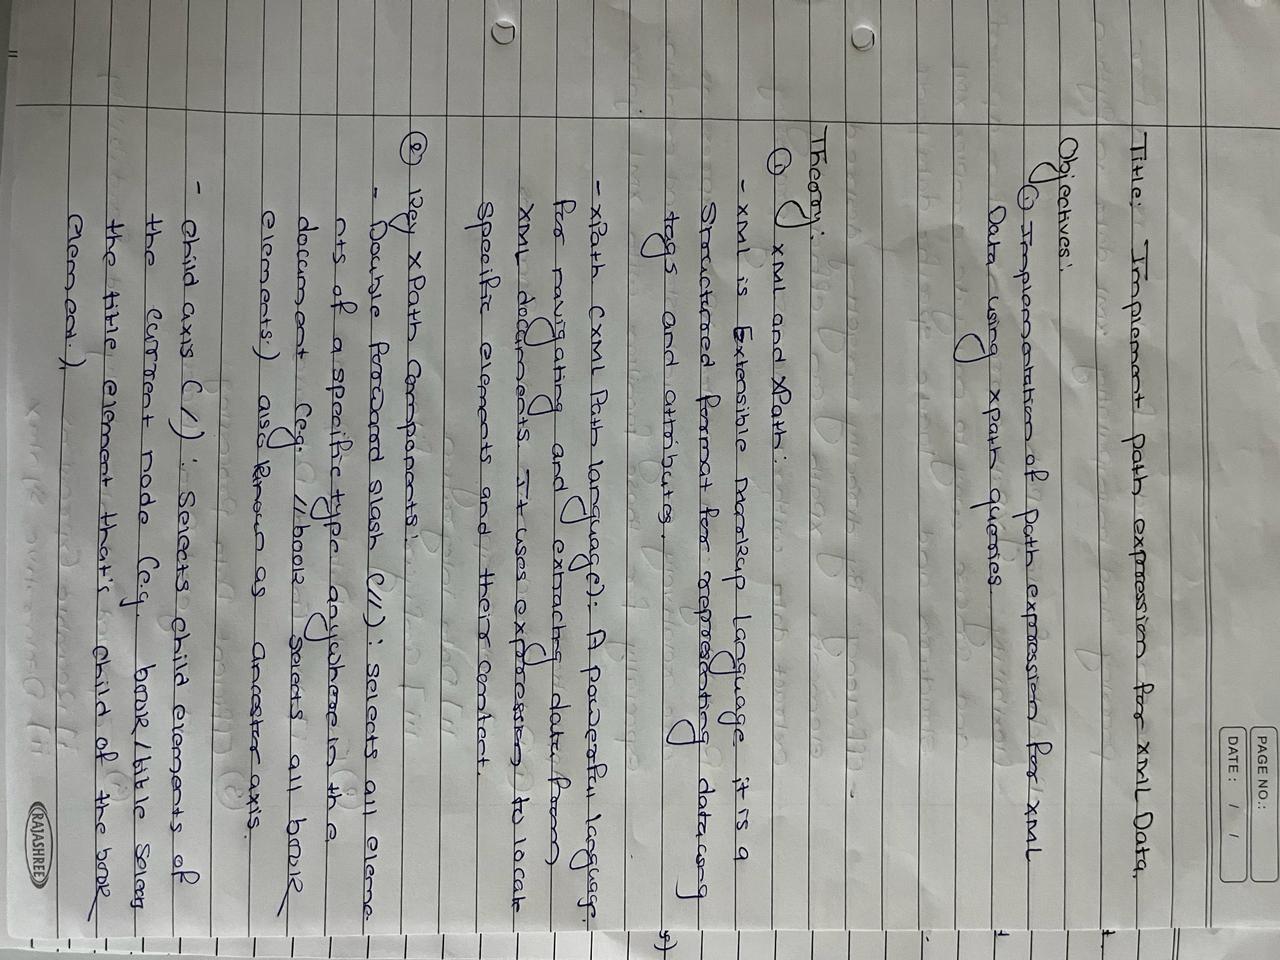 PAGE NO.:
DATE: / /
Title: Implement path expression for XML Data.
Objectives:
① Implementation of path expression for XML
Data using xPath queries.
Theory:
① XML and xPath:
- XML is Extensible markup language it is a
Structured format for representing data using
tags and attributes.
- xPath (XML Path language): A powerful language
for navigating and extracting data from
XML documents. It uses expression to locate
specific elements and their content.
② Key xPath Components:
- Double forward slash (//): selects all eleme
nts of a specific type anywhere in the
document (eg. //book selects all book
elements) also know as ancestor axis.
- child axis (/): selects child elements of
the current node (eg. book/title selects
the title element that's child of the book
element.)
RAJASHREE